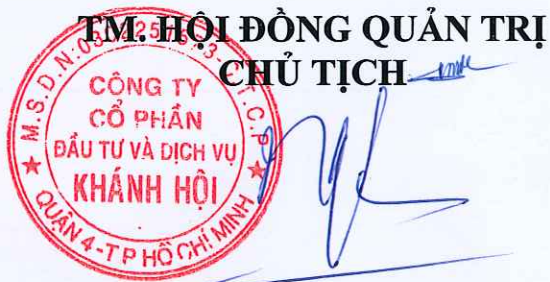 TM. HỘI ĐỒNG QUẢN TRỊ
CHỦ TỊCH
CÔNG TY
CỔ PHẦN
ĐẦU TƯ VÀ DỊCH VỤ
KHÁNH HỘI
QUẬN 4-T P HỒ CHÍ MINH